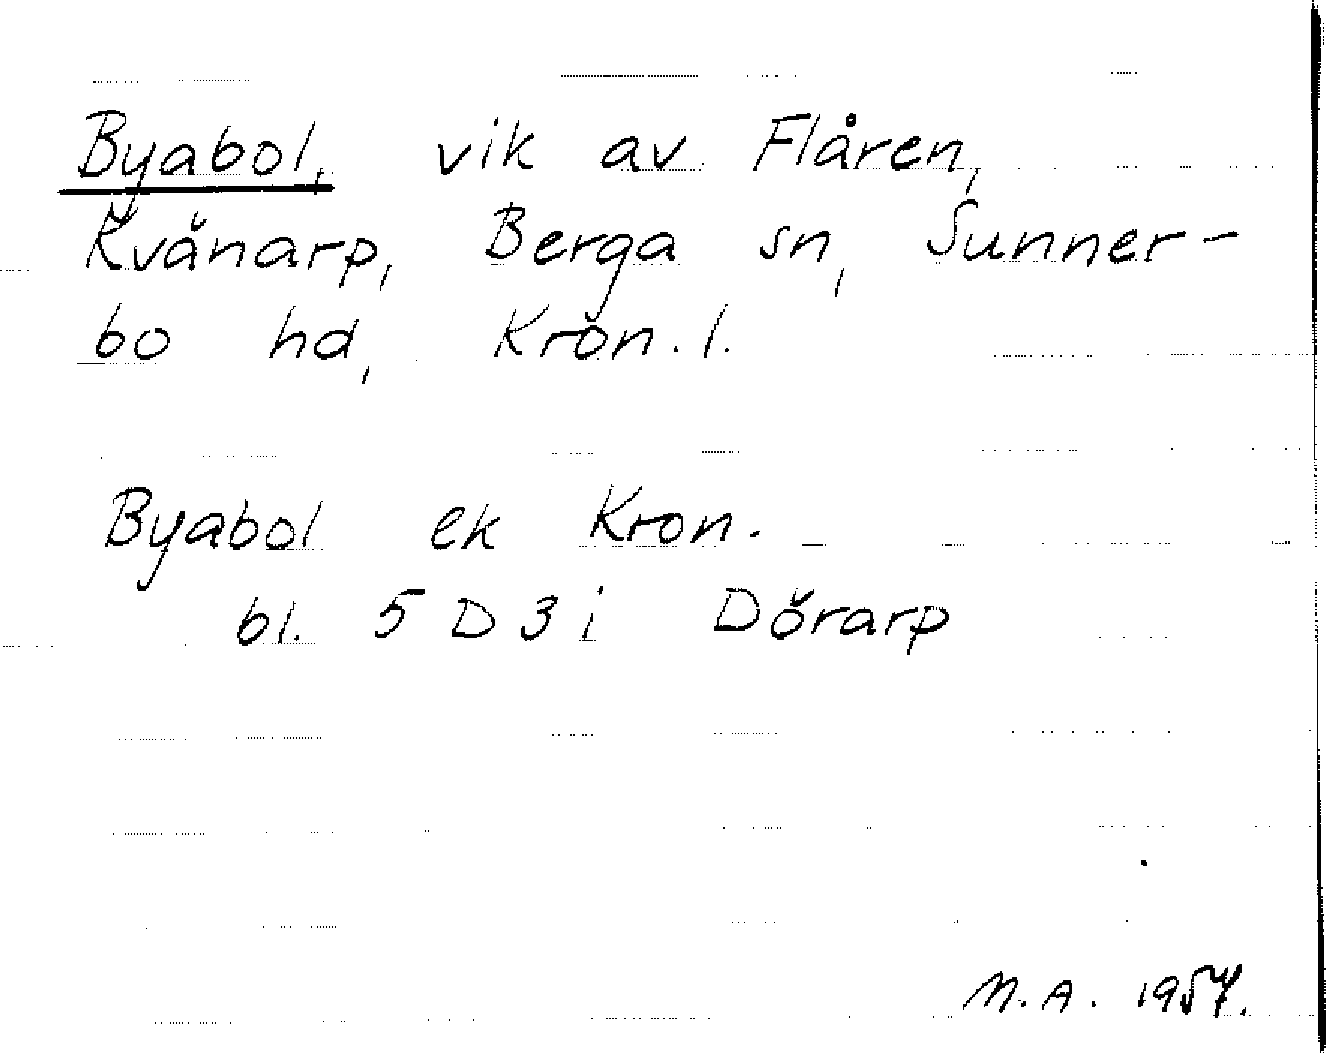 Byabol, vik av Flåren,
Kvänarp, Berga sn, Sunner-
bo hd, Kron. l.
Byabol ek Kron.
bl. 5 D 3 i Dörarp
M.A. 1957.